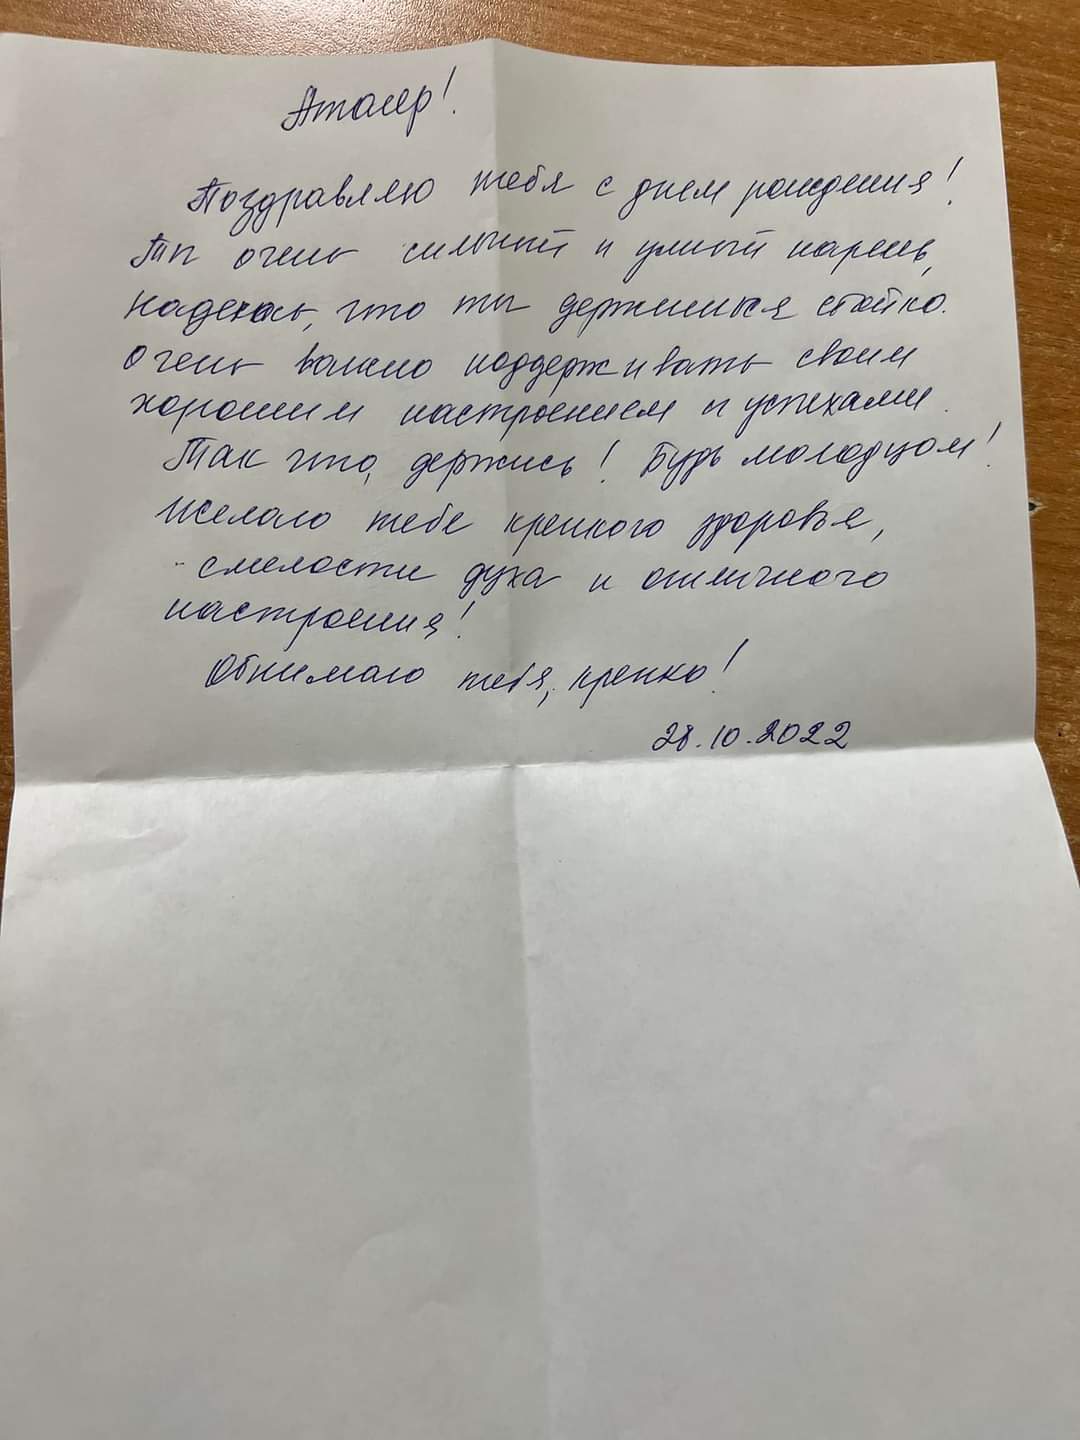 Поздравляю тебя с днем рождения!
Ты очень сильный и умный парень,
надеюсь, что ты держишься стойко.
Очень важно поддерживать своим
хорошим настроением и успехами.
Так что, держись! Будь молодцом!
Желаю тебе крепкого здоровья,
смелости духа и отличного
настроения!
Обнимаю тебя, крепко!
28.10.2022